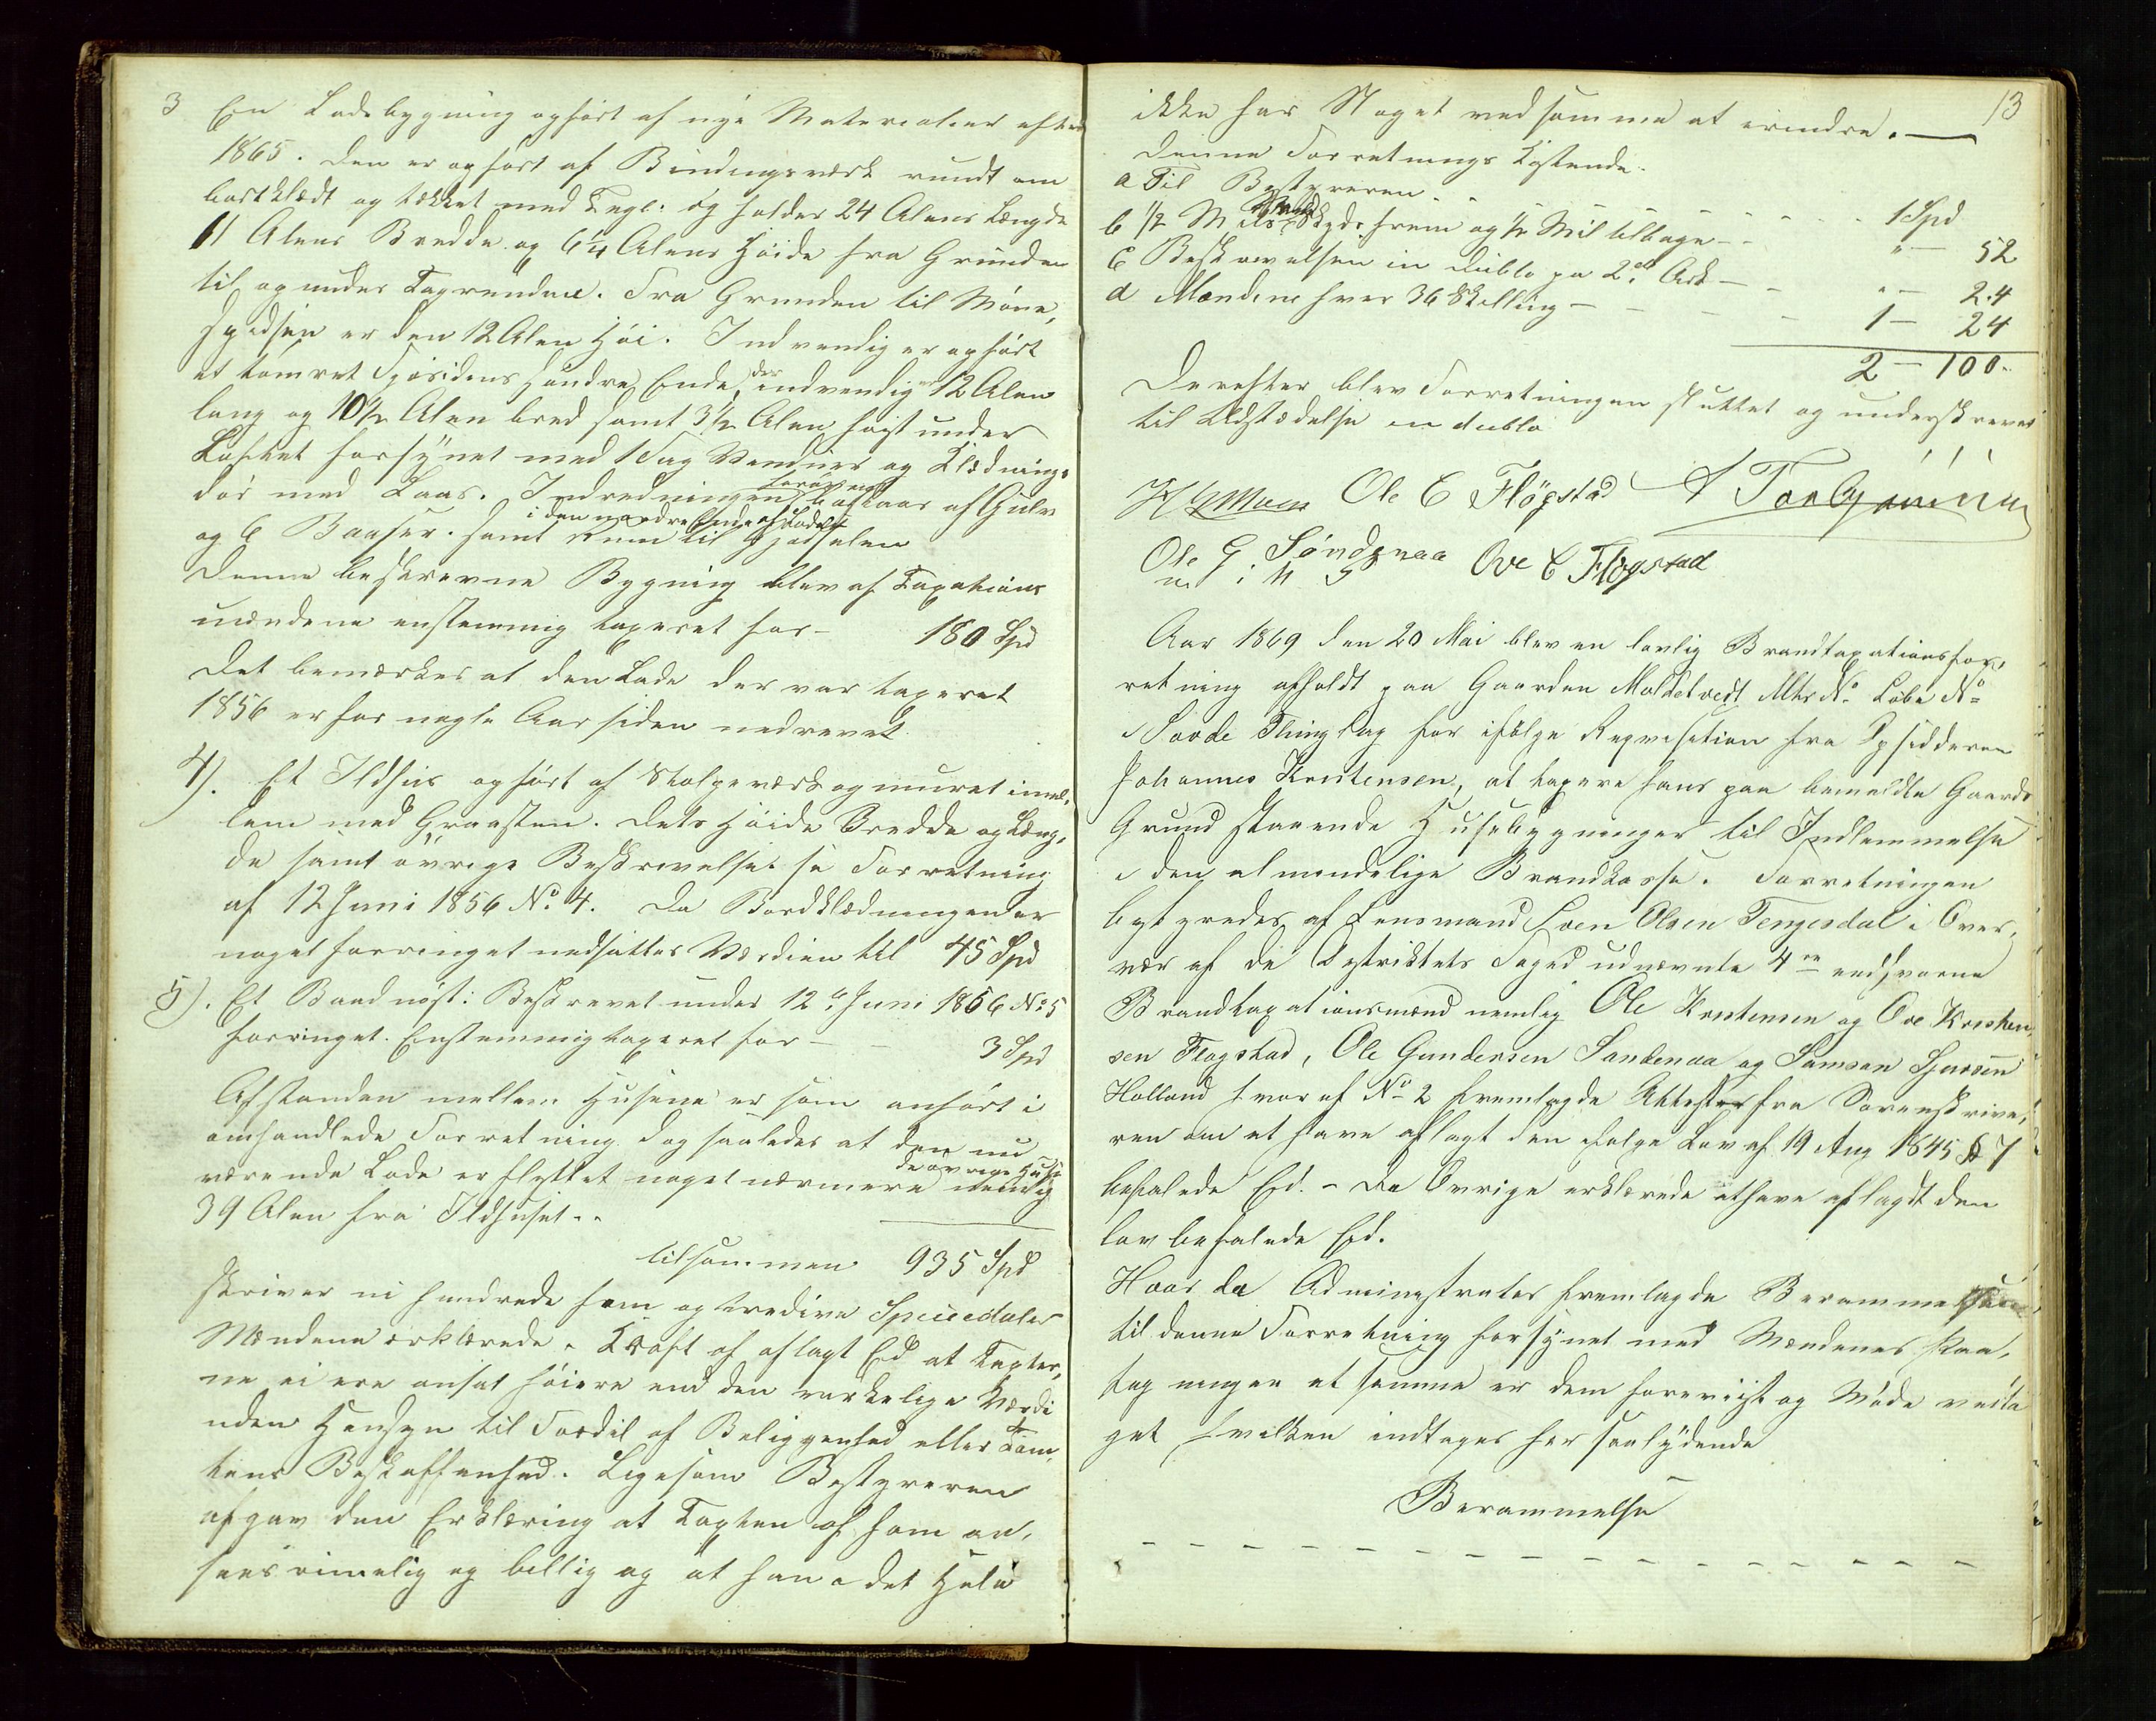 3 En Ladebygning opført af nye Materialier efter
1865. Den er opført af Bindingsværk rundt om
bordklædt og tækket med Tegl: og holder 24 Alens Længde
11 Alens Bredde og 6 1/4 Alens Høide fra Grunden
til og under Tagrenderne. Fra Grunden til Møne,
Spidsen er den 12 Alen høi. Indvendig er opført
et tømret Fjøs i dens søndre Ende, der indvendig er 12 Alen
lang og 10 1/2 Alen bred samt 3 1/2 Alen høist under
Loftet forsynet med 1 Fag Vinduer og Klædnings
dør med Laas. Indredningen bestaar af Gulv
og 6 Baaser. samt Rum til Gjødselen
i den nordre Ende af Laden
Denne beskrevne Bygning blev af Taxations
mændene enstemmig taxeret for - 180 Spd
Det bemærkes at den Lade der var taxeret
1856 er for nogle Aar siden nedrevet
4). Et Ildhus opført af Stolpeværk og muret imel,
lem med Graasten. Dets Høide Bredde og Læng,
de samt øvrige Beskrivelse se Forretning
af 12 Juni 1856 No. 4. Da Bordklædningen er
noget forringet nedsættes Værdien til 45 Spd
5). Et Baadnøst: Beskrevet under 12te Juni 1856 No 5
forringet. Enstemmig taxeret for - - 3 Spd
Afstanden mellem Husene er som anført i
omhandlede Forretning dog saaledes at den nu
værende Lade er flyttet noget nærmere de øvrige Huse nemlig
39 Alen fra Ildhuset. -
tilsammen 935 Spd
skriver ni hundrede fem og tredive Speciedaler
Mændene erklærede i Kraft af aflagt Ed at Taxter,
ne ei ere ansat høiere end den virkelige Værdi
uden Hensyn til Fordel af Beliggenhed eller Tom,
tens Beskaffenhed. Ligesom Bestyreren
afgav den Erklæring at Taxten af ham an,
sees rimelig og billig og at han i det Hele
13
ikke har Noget ved samme at erindre. -
Denne Forretnings Kostende.
a Til Bestyreren - - - - - 1 Spd
b 1/2 Mils Skyds frem og 1/2 Mil tilbage - - " - 52
c Beskrivelsen in dublo paa 2de Ark - - " - 24
d Mændene hver 36 Skilling - - - - 1 - 24
2 - 100.
Derefter blev Forretningen sluttet og underskrevet
til Udstædelse in dublo
Ole C Fløgstad
Ole G Søndenaa Ove C Fløgstad
m i h P
Aar 1869 den 20 Mai blev en lovlig Brandtaxationsfor,
retning afholdt paa Gaarden Moldetvedt Mtr No. Løbe No
Sovde Thinglag for ifølge Reqvisition fra Opsidderen
Johannes Kristensen, at taxere hans paa bemeldte Gaards
Grund staaende Husebygninger til Indlemmelse
i den almindelige Brandkasse. Forretningen
bestyredes af Lensmand Sven Olsen Tengesdal i Over,
vær af de Distriktets Foged udnævnte 4re eedsvorne
Brandtaxationsmænd nemlig Ole Kristensen og Ove Kristen,
sen Flogstad, Ole Gundersen Sandenaa og Samson Sjursen
Holland hvor af No 2 fremlagde Attester fra Sorenskrive,
ren om at have aflagt den ifølge Lov af 19 Aug 1845 § 7
befalede Ed. - De Øvrige erklærede at have aflagdt den
lov befalede Ed.
Hvor da Administrator fremlagde Berammelsen
til denne Forretning forsynet med Mændenes Paa,
tegningen at samme er dem forevist og Møde vedta
get hvilken indtages her saalydende
Berammelse
- - - - - - - - - - - - - - - -